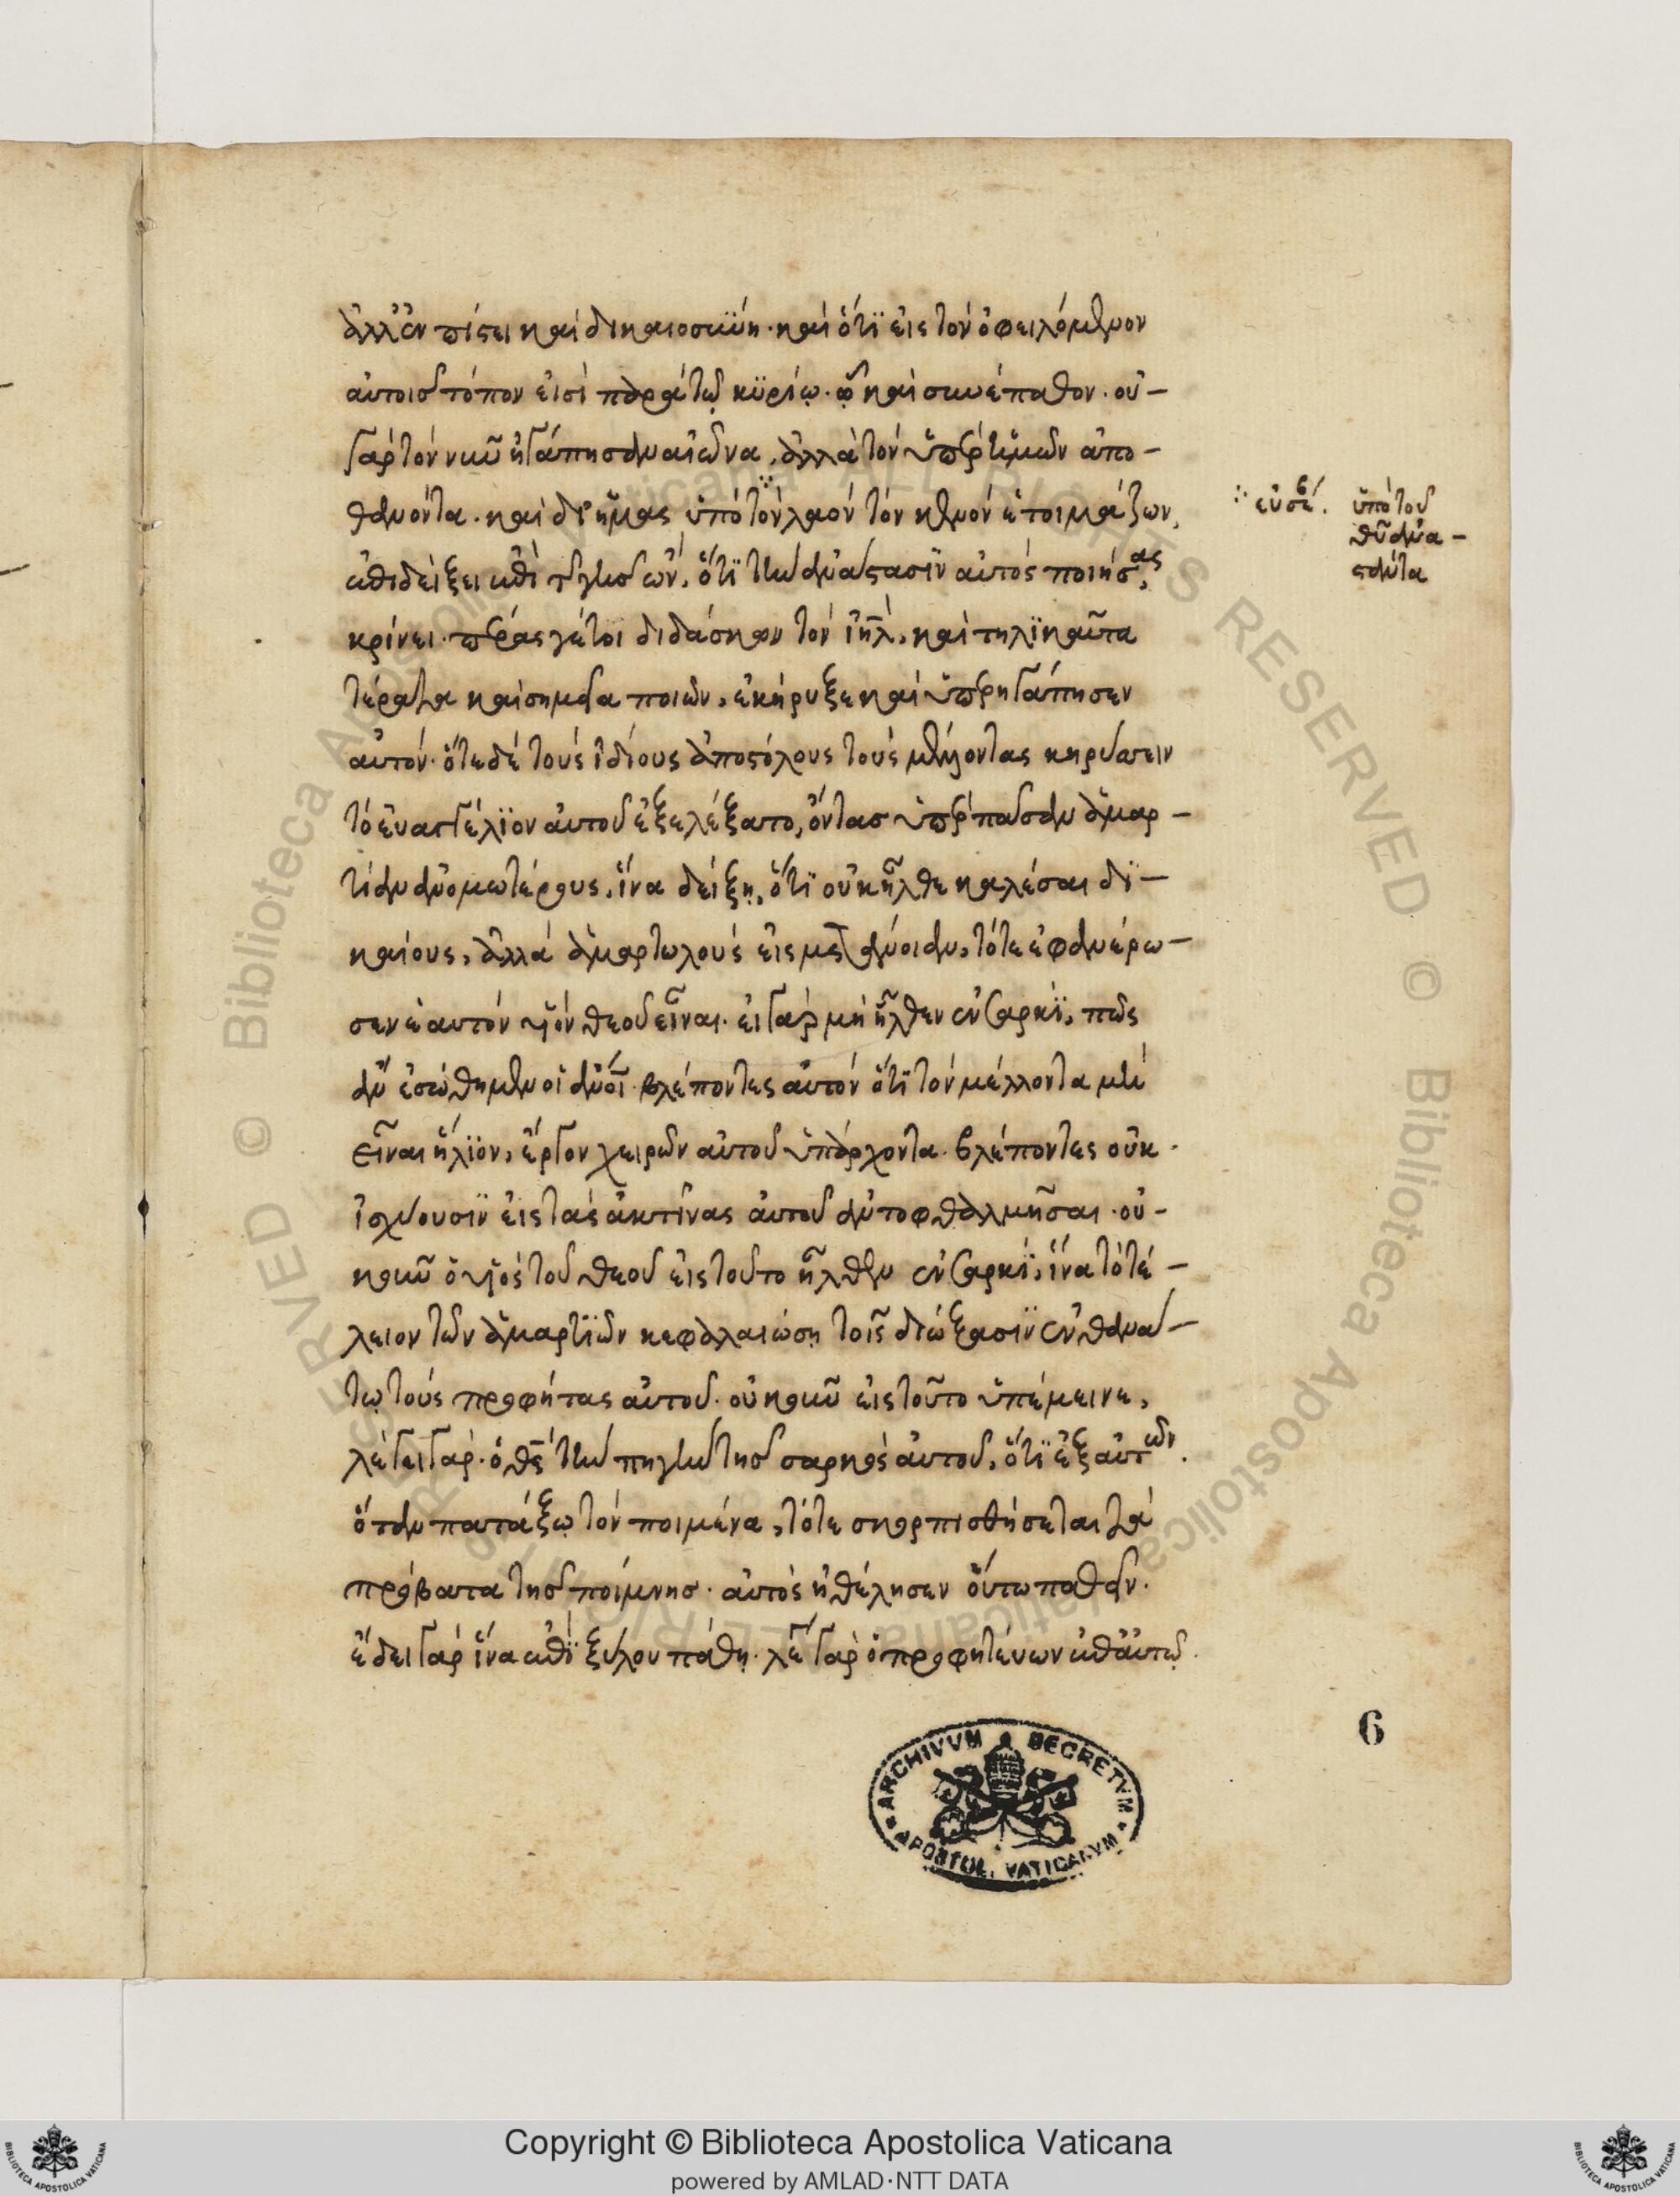 ἀλλ' ἐν πίστει καὶ δικαιοσύνη· καὶ ὅτι εἰς τὸν ὀφειλόμενον
αὐτοῖς τόπον εἰσὶ παρὰ τῷ κυρίῳ· ᾧ καὶ συνέπαθον· οὐ-
γὰρ τὸν νῦν ἠγάπησαν αἰῶνα, ἀλλὰ τὸν ὑπὲρ ἡμῶν ἀπο-
θανόντα· καὶ δι' ἡμᾶς ὑπὸ τὸν λαὸν τὸν κενὸν ἑτοιμάζων,
ἐπιδείξει ἐπὶ τῆς γῆς ὢν, ὅτι τὴν ἀνάστασιν αὐτὸς ποιήσας,
κρίνει· πέρας γέτοι διδάσκων τὸν ἰηλ, καὶ τηλικαῦτα
τέρατα καὶ σημεῖα ποιῶν, ἐκήρυξε καὶ ὑπερηγάπησεν
αὐτόν· ὅτε δὲ τοὺς ἰδίους ἀποστόλους τοὺς μέλλοντας κηρύσσειν
τὸ εὐαγγέλιον αὐτοῦ ἐξελέξατο, ὄντας ὑπὲρ πᾶσαν ἁμαρ-
τίαν ἀνομωτέρους, ἵνα δείξῃ, ὅτι οὐκ ἦλθε καλέσαι δι-
καίους, ἀλλὰ ἁμαρτωλοὺς εἰς μετάνοιαν, τότε ἐφανέρω-
σεν ἑαυτὸν υἱὸν θεοῦ εἶναι· εἰ γὰρ μὴ ἦλθεν ἐν σαρκὶ, πῶς
ἂν ἐσώθημεν οἱ ἄνοι βλέποντες αὐτὸν ὅτι τὸν μέλλοντα μὴ
εἶναι ἥλιον, ἔργον χειρῶν αὐτοῦ ὑπάρχοντα· βλέποντες οὐκ
ἰσχύουσιν εἰς τὰς ἀκτῖνας αὐτοῦ ἀντοφθαλμῆσαι· οὐ-
κοῦν ὁ υἱὸς τοῦ θεοῦ εἰς τοῦτο ἦλθεν ἐν σαρκὶ, ἵνα τὸ τέ-
λειον τῶν ἁμαρτιῶν κεφαλαιώσῃ τοῖς διώξασιν ἐν θανά-
τῳ τοὺς προφήτας αὐτοῦ· οὐκοῦν εἰς τοῦτο ὑπέμεινε,
λέγει γὰρ· ὁ θς τὴν πληγὴν τῆς σαρκὸς αὐτοῦ, ὅτι ἐξ αὐτῶν.
ὅταν πατάξω τὸν ποιμένα, τότε σκορπισθήσεται τὰ
πρόβατα τῆς ποίμνης· αὐτὸς ἠθέλησεν οὕτω παθεῖν·
ἔδει γὰρ ἵνα ἐπὶ ξύλου πάθῃ· λέγει γὰρ ὁ προφητεύων ἐπ' αὐτῷ·
εὐσέβ. ὑπὸ τοῦ
θῦ ἀνα-
στάντα
6
ARCHIVVM SECRETVM
APOSTOL. VATICANVM
© Biblioteca Apostolica Vaticana ALL RIGHTS RESERVED
© Biblioteca Apostolica Vaticana ALL RIGHTS RESERVED
Copyright © Biblioteca Apostolica Vaticana
powered by AMLAD·NTT DATA